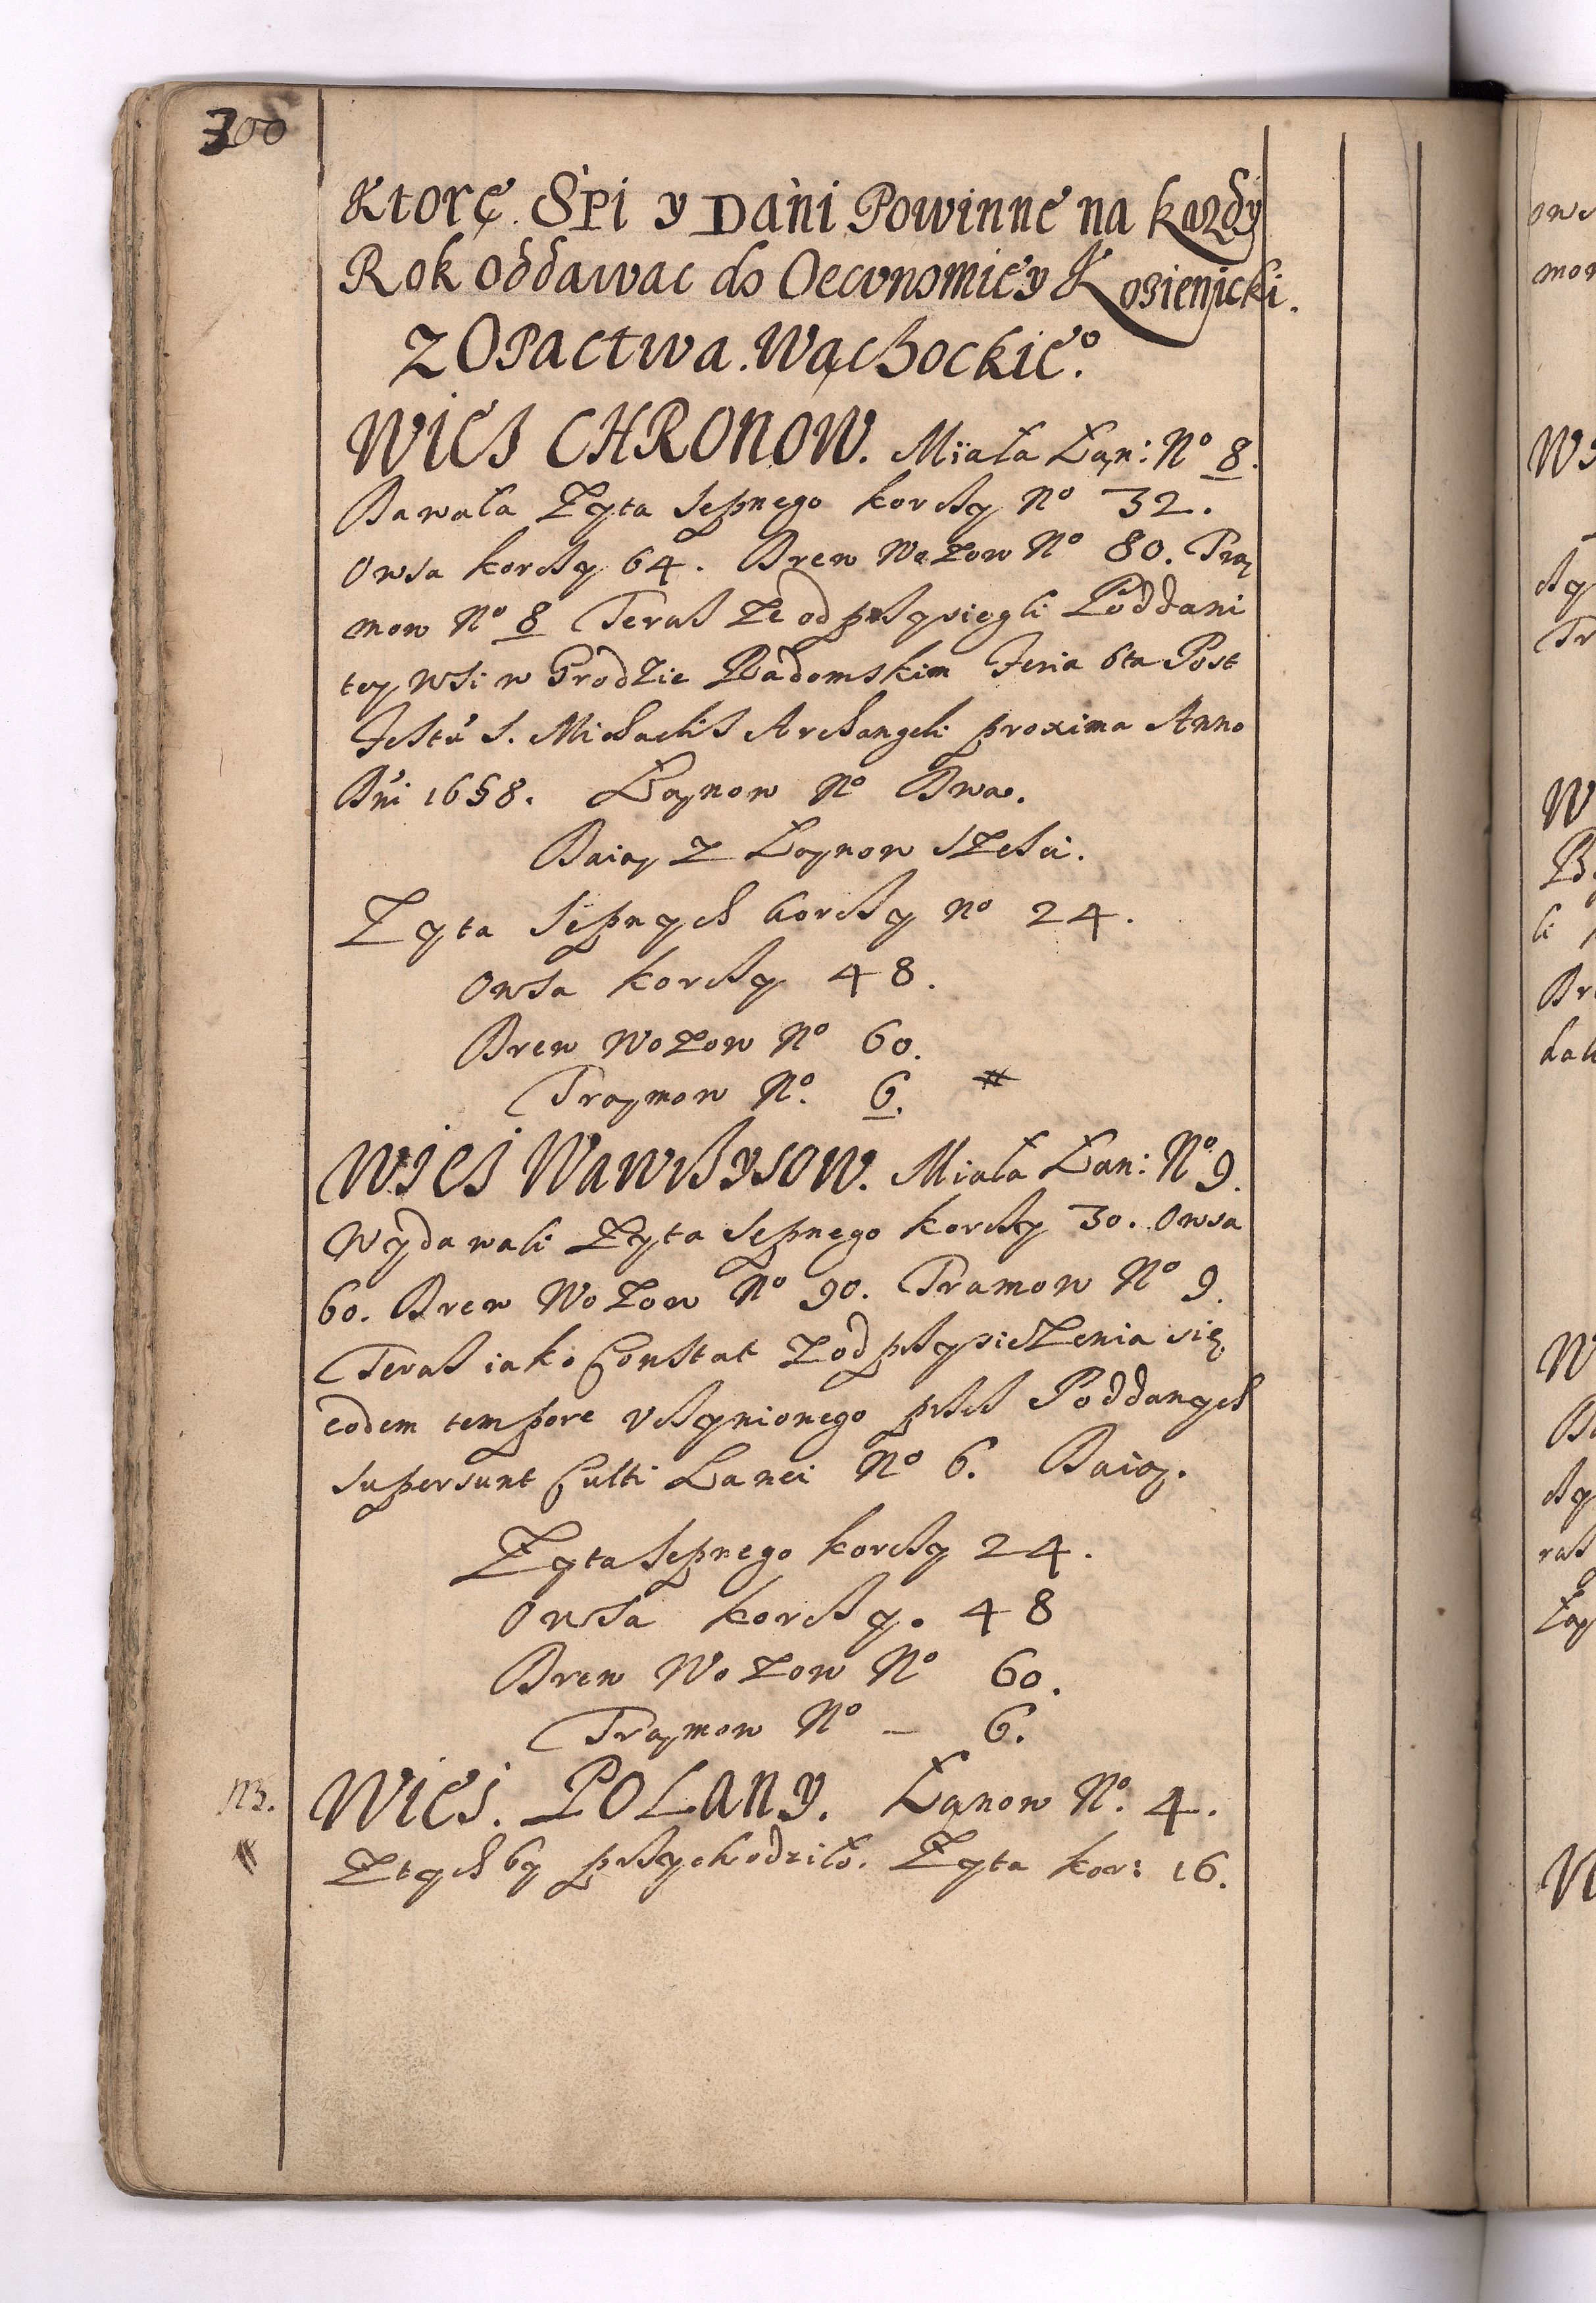 300
Ktorę Spi y Dani Powinne na każdy
Rok oddawac do Oecvnomiey Kozienicki.
Z Opactwa. Wąchockie°.
WIES CHRONOW. Miała Łan: N° 8.
Dawała Zyta sepnego korczy N° 32.
Owsa korczy 64. Drew Wozow N° 80. Trą
mow N° 8 Teraz ze odprzysiegli Poddani
tey Wsi w Grodzie Radomskim Feria 6ta Post
Festu S. Michaelis Archangeli proxima Anno
Dni 1658. Łąnow N° Dwa.
Daią z Łąnow szesci.
Zyta sepnych korczy N° 24.
Owsa korczy 48.
Drew Wozow N° 60.
Trąmow N°. 6.
WIES Wawrzysow. Miała Łan: N° 9.
Wydawali Zyta sepnego korczy 30. Owsa
60. Drew Wozow N° 90. Tramow N° 9.
Teraz iako Constat z odprzysiezenia się
eodem tempore vczynionego przez Poddanych
supersunt Culti Lanei N° 6. Daią.
Zyta sepnego korczy 24.
Owsa korczy. 48
Drew Wozow N° 60.
Trąmow N° – 6.
NB. WIES. POLANY. Łąnow N°. 4.
Z tych by przychodziło. Zyta kor: 16.